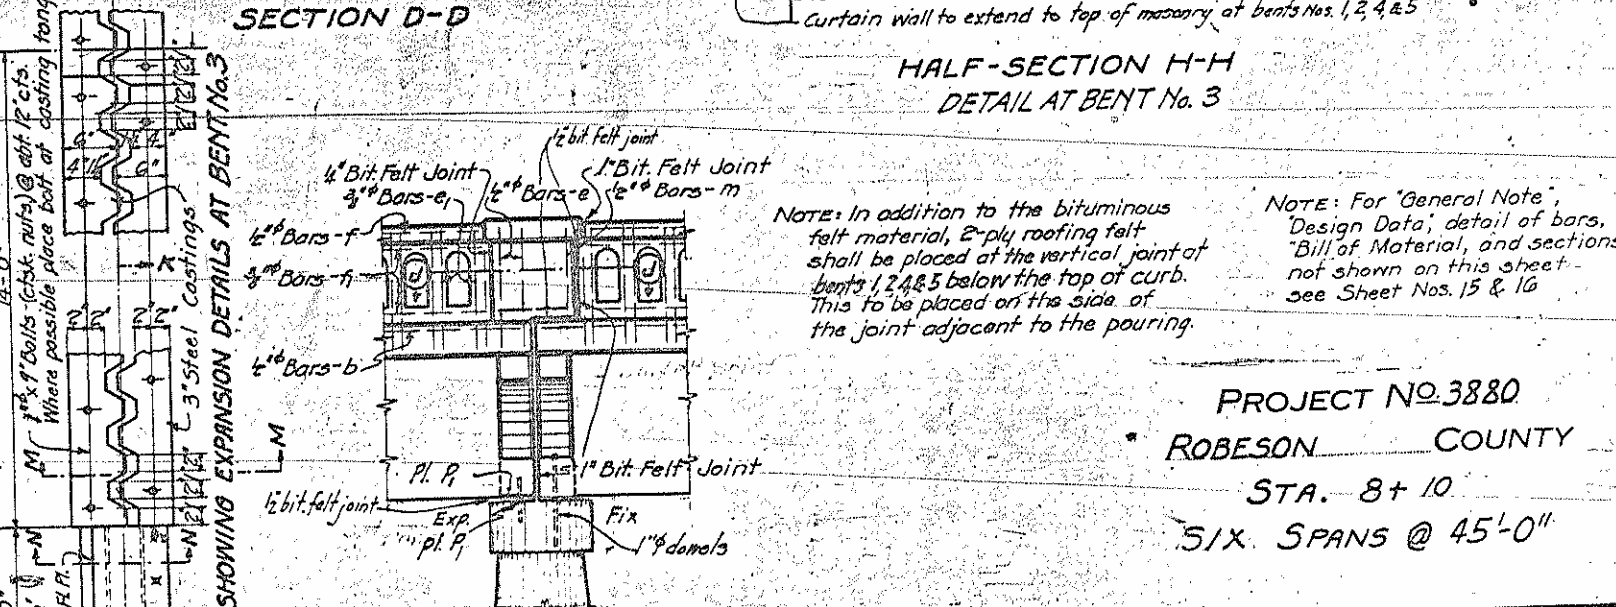 SECTION D-D
Curtain wall to extend to top of masonry at bents Nos. 1, 2, 4, & 5
HALF-SECTION H-H
DETAIL AT BENT No. 3
1"ø x 9" Bolts (ctsk. nuts) @ abt. 12" cts.
Where possible place bolt at casting
14'-0"
6"
4"
6"
2" 2" 2"
3" Steel Castings
SHOWING EXPANSION DETAILS AT BENT No. 3
2" 2" 2" 2"
M
M
2" 2" 2"
N
N
Fl. Pl.
½" bit. felt joint
Bit. Felt Joint
1" Bit. Felt Joint
Bars-e₁
½"ø Bars-e
½"ø Bars-m
½"ø Bars-f
Bars-h
½"ø Bars-b
Pl. P₁
1" Bit. Felt Joint
½" bit. felt joint
Exp.
pl. P₁
Fix
1"ø dowels
NOTE: In addition to the bituminous
felt material, 2-ply roofing felt
shall be placed at the vertical joint at
bents 1, 2, 4 & 5 below the top of curb.
This to be placed on the side of
the joint adjacent to the pouring.
NOTE: For "General Note",
"Design Data", detail of bars,
"Bill of Material, and sections
not shown on this sheet
see Sheet Nos. 15 & 16
PROJECT No. 3880
ROBESON COUNTY
STA. 8+10
SIX SPANS @ 45'-0"